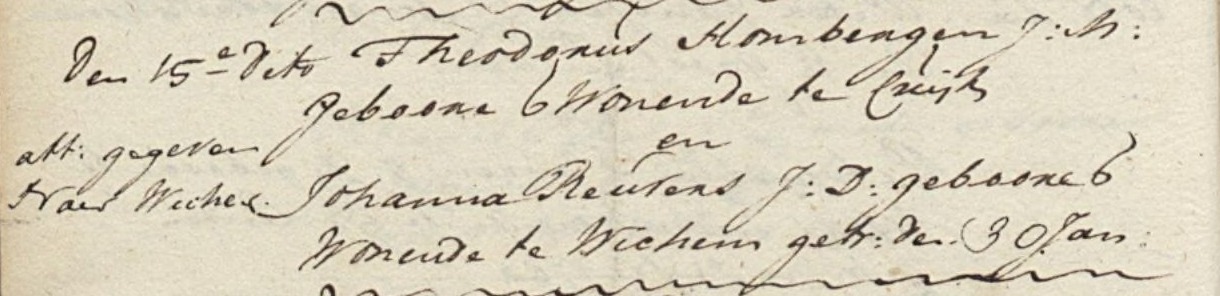 Den 15e dito Theodorus Hombergen J: M:
geboore & Wonende te Cuijk
en
att: gegeven
Naer Wichen. Johanna Reurens J: D: geboore &
Wonende te Wichem getr: den 30 Jan